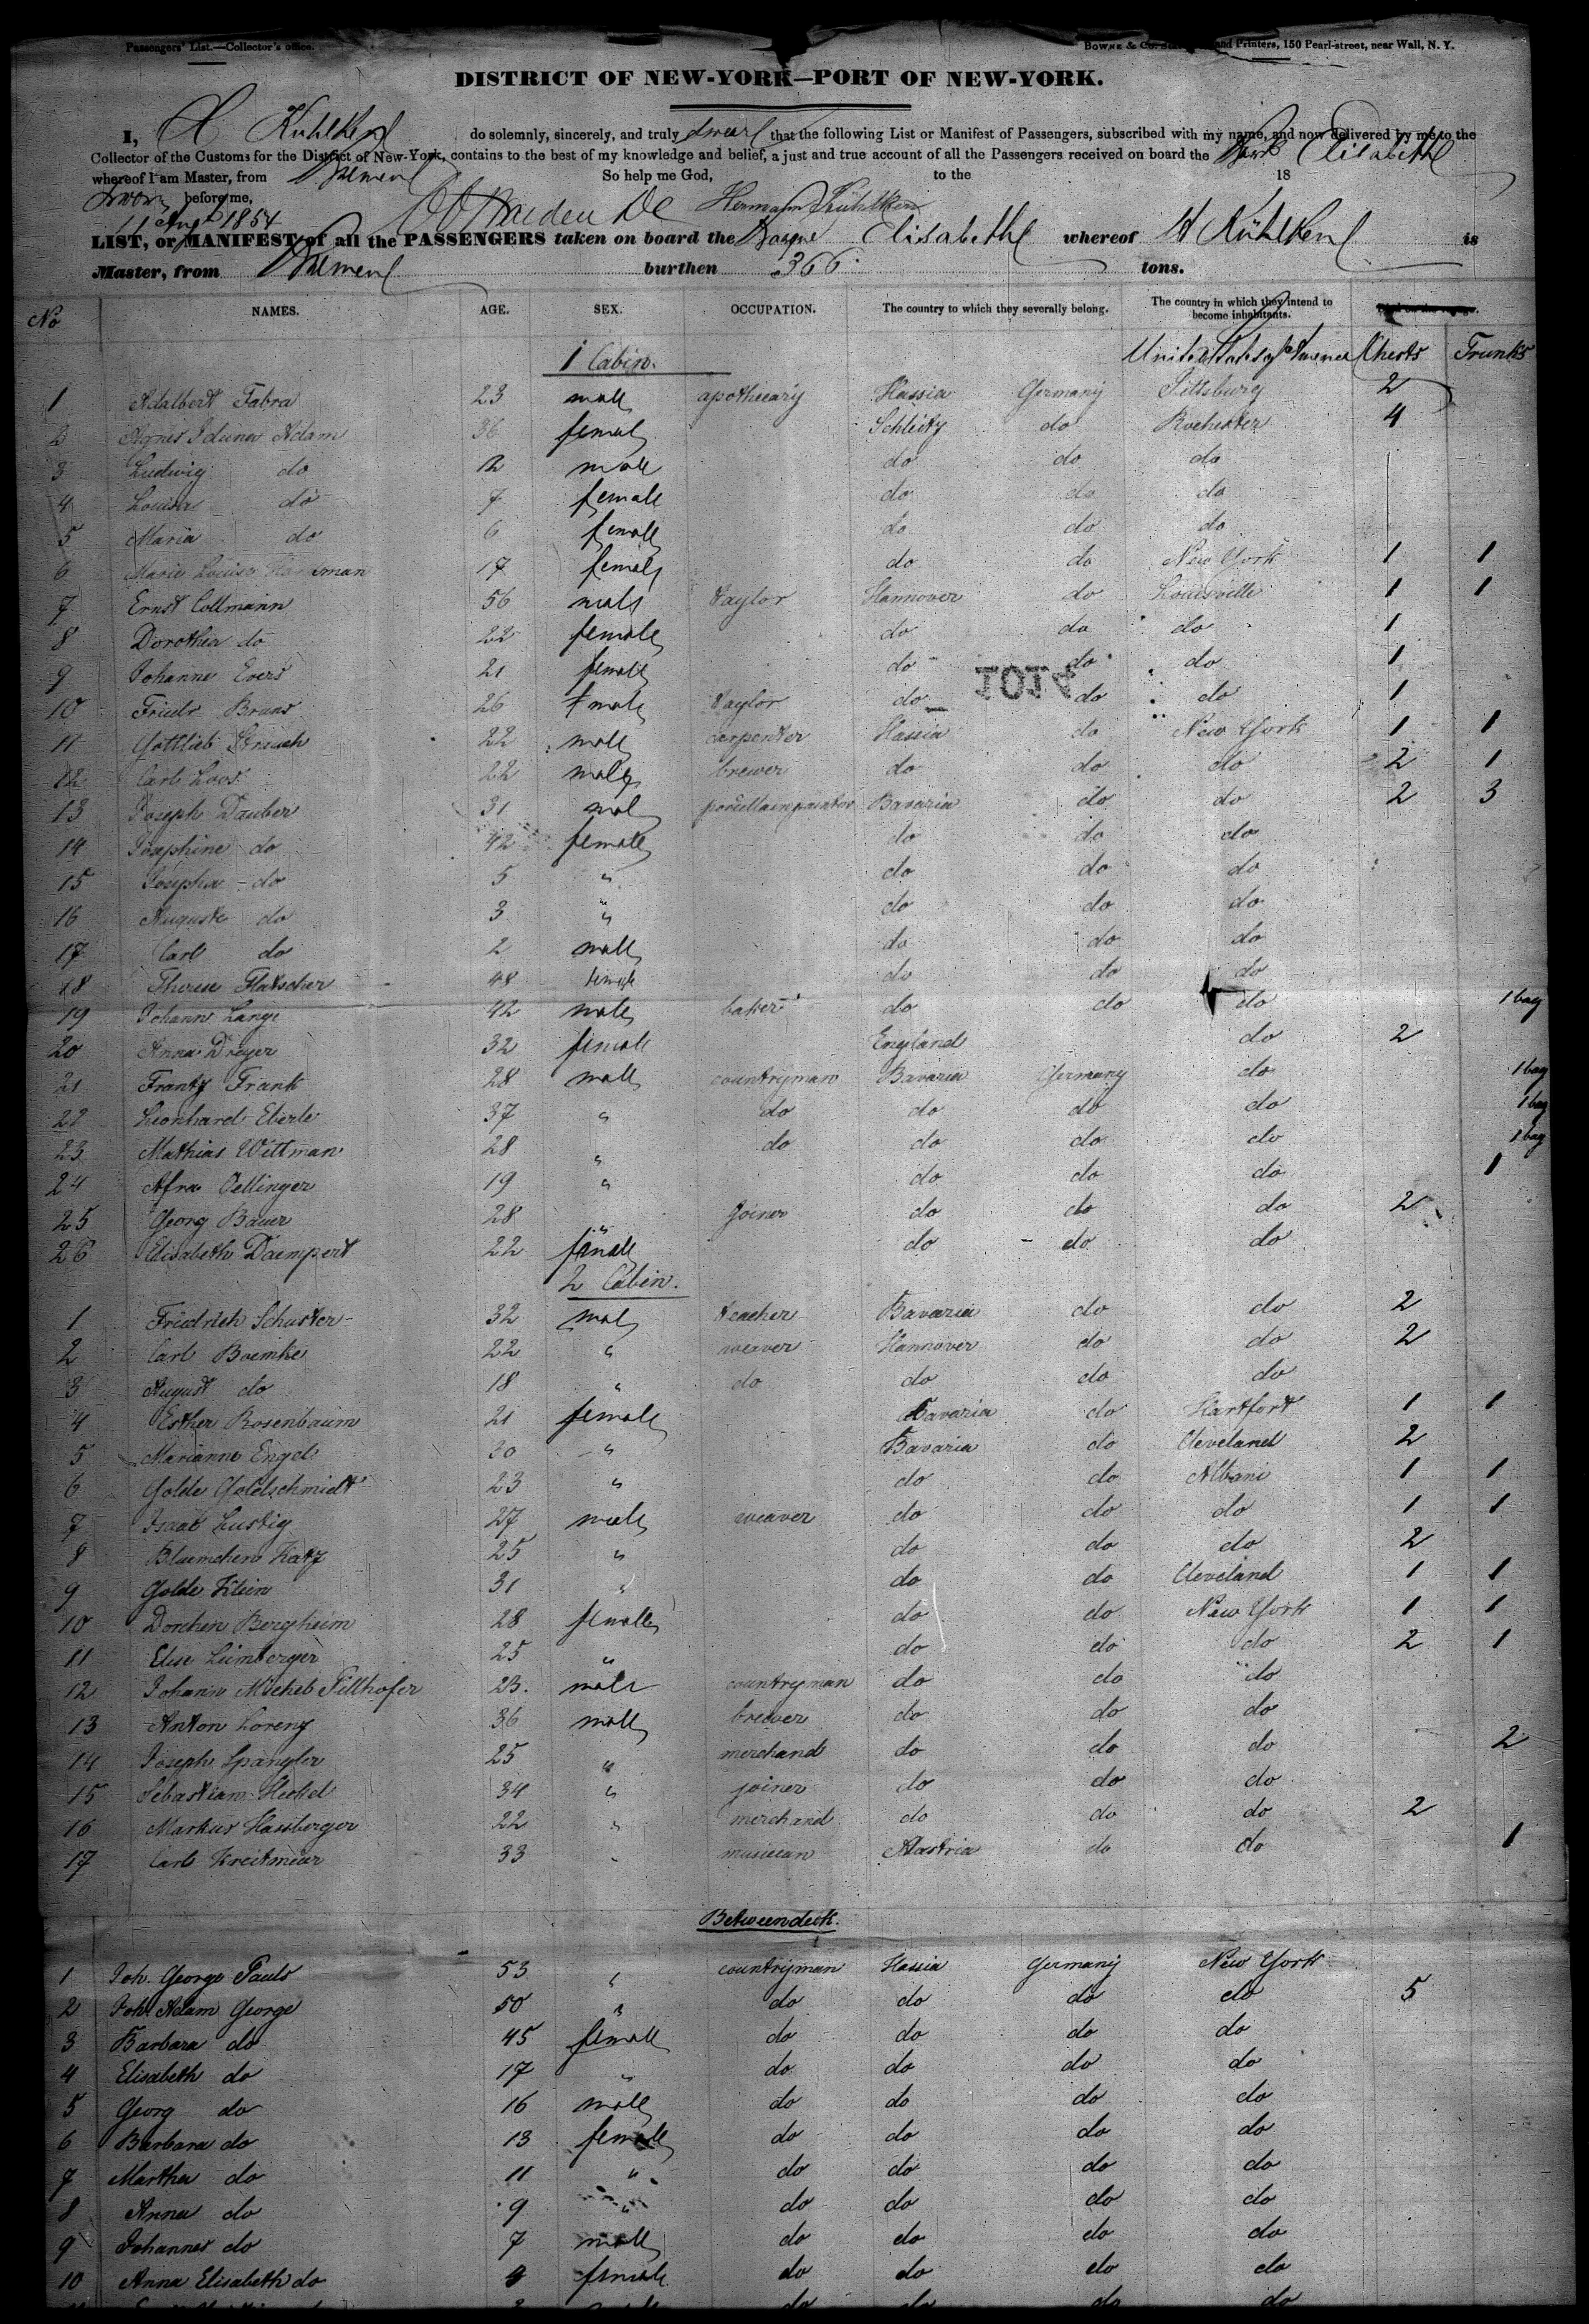 Passengers' List.—Collector's office.
Bowne & Co. and Printers, 150 Pearl-street, near Wall, N. Y.
DISTRICT OF NEW-YORK—PORT OF NEW-YORK.
I, H Kuhlken do solemnly, sincerely, and truly swear that the following List or Manifest of Passengers, subscribed with my name, and now delivered by me to the
Collector of the Customs for the District of New-York, contains to the best of my knowledge and belief, a just and true account of all the Passengers received on board the Bark Elisabeth
whereof I am Master, from Bremen So help me God, to the 18
Sworn before me, Hermann Kühlken
11 Aug 1854
LIST, or MANIFEST of all the PASSENGERS taken on board the Barque Elisabeth whereof H Kühlken is
Master, from Bremen burthen 366 tons.
No NAMES. AGE. SEX. OCCUPATION. The country to which they severally belong. The country in which they intend to become inhabitants.
1 Cabin. United States of America Chests Trunks
1 Adalbert Fabra 23 male apothecary Hassia Germany Pittsburg 2
2 Agnes Iduna Adam 36 female Schleitz do Rochester 4
3 Ludwig do 12 male do do do
4 Louisa do 7 female do do do
5 Maria do 6 female do do do
6 Marie Louise 17 female do do New York 1 1
7 Ernst Collmann 56 male taylor Hannover do Louisville 1 1
8 Dorothea do 22 female do do do 1
9 Johanne Evers 21 female do do do 1
10 Friedr Bruns 26 male taylor do do do 1
1014
11 Gottlieb Strauch 22 male carpenter Hassia do New York 1 1
12 Carl Loos 22 male brewer do do do 2 1
13 Joseph Dauber 31 male porcellainpainter Bavaria do do 2 3
14 Josephine do 42 female do do do
15 Josepha do 5 " do do do
16 Auguste do 3 " do do do
17 Carl do 2 male do do do
18 Therese Flatscher 48 female do do do
19 Johann Lange 42 male baker do do do 1 bag
20 Anna Dreyer 32 female England do 2
21 Frantz Frank 28 male countryman Bavaria Germany do 1 bag
22 Leonhard Eberle 37 " do do do do 1 bag
23 Mathias Wittman 28 " do do do do 1 bag
24 Afra Oellinger 19 " do do do 1
25 Georg Bauer 28 " joiner do do do 2
26 Elisabeth Daempert 22 female do do do
2 Cabin.
1 Friedrich Schuster 32 male teacher Bavaria do do 2
2 Carl Boemke 22 " weaver Hannover do do 2
3 August do 18 " do do do do
4 Esther Rosenbaum 21 female Bavaria do Hartfort 1 1
5 Marianne Engel 30 " Bavaria do Cleveland 2
6 Golde Goldschmidt 23 " do do Albani 1 1
7 Isaac Lustig 27 male weaver do do do 1 1
8 Bluemchen Katz 25 " do do do 2
9 Golde Klein 31 " do do Cleveland 1 1
10 Dorchen Bergheim 28 female do do New York 1 1
11 Elise Leimberger 25 " do do do 2 1
12 Johann Michel Pillhofer 23. male countryman do do do
13 Anton Lorenz 36 male brewer do do do
14 Joseph Spangler 25 " merchand do do do 2
15 Sebastian Heckel 34 " joiner do do do
16 Markus Hassberger 22 " merchand do do do 2
17 Carl Kreitmeier 33 musician Austria do do 1
Betweendeck.
1 Joh. George Pauls 53 " countryman Hassia Germany New York
2 Joh. Adam George 50 " do do do do 5
3 Barbara do 45 female do do do do
4 Elisabeth do 17 " do do do do
5 Georg do 16 male do do do do
6 Barbara do 13 female do do do do
7 Martha do 11 " do do do do
8 Anna do 9 " do do do do
9 Johannes do 7 male do do do do
10 Anna Elisabeth do female do do do do
do do do do